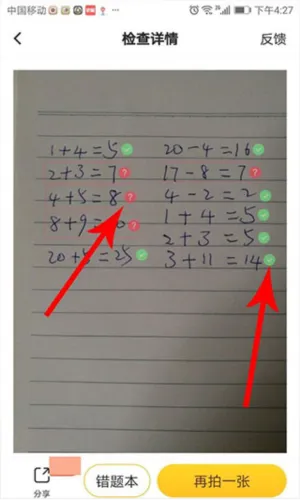 中国移动 下午4:27
检查详情 反馈
1+4=5 20-4=16
2+3=7 17-8=7
4+5=8 4-2=2
8+9= 1+4=5
2+3=5
20+5=25 3+11=14
分享
错题本
再拍一张